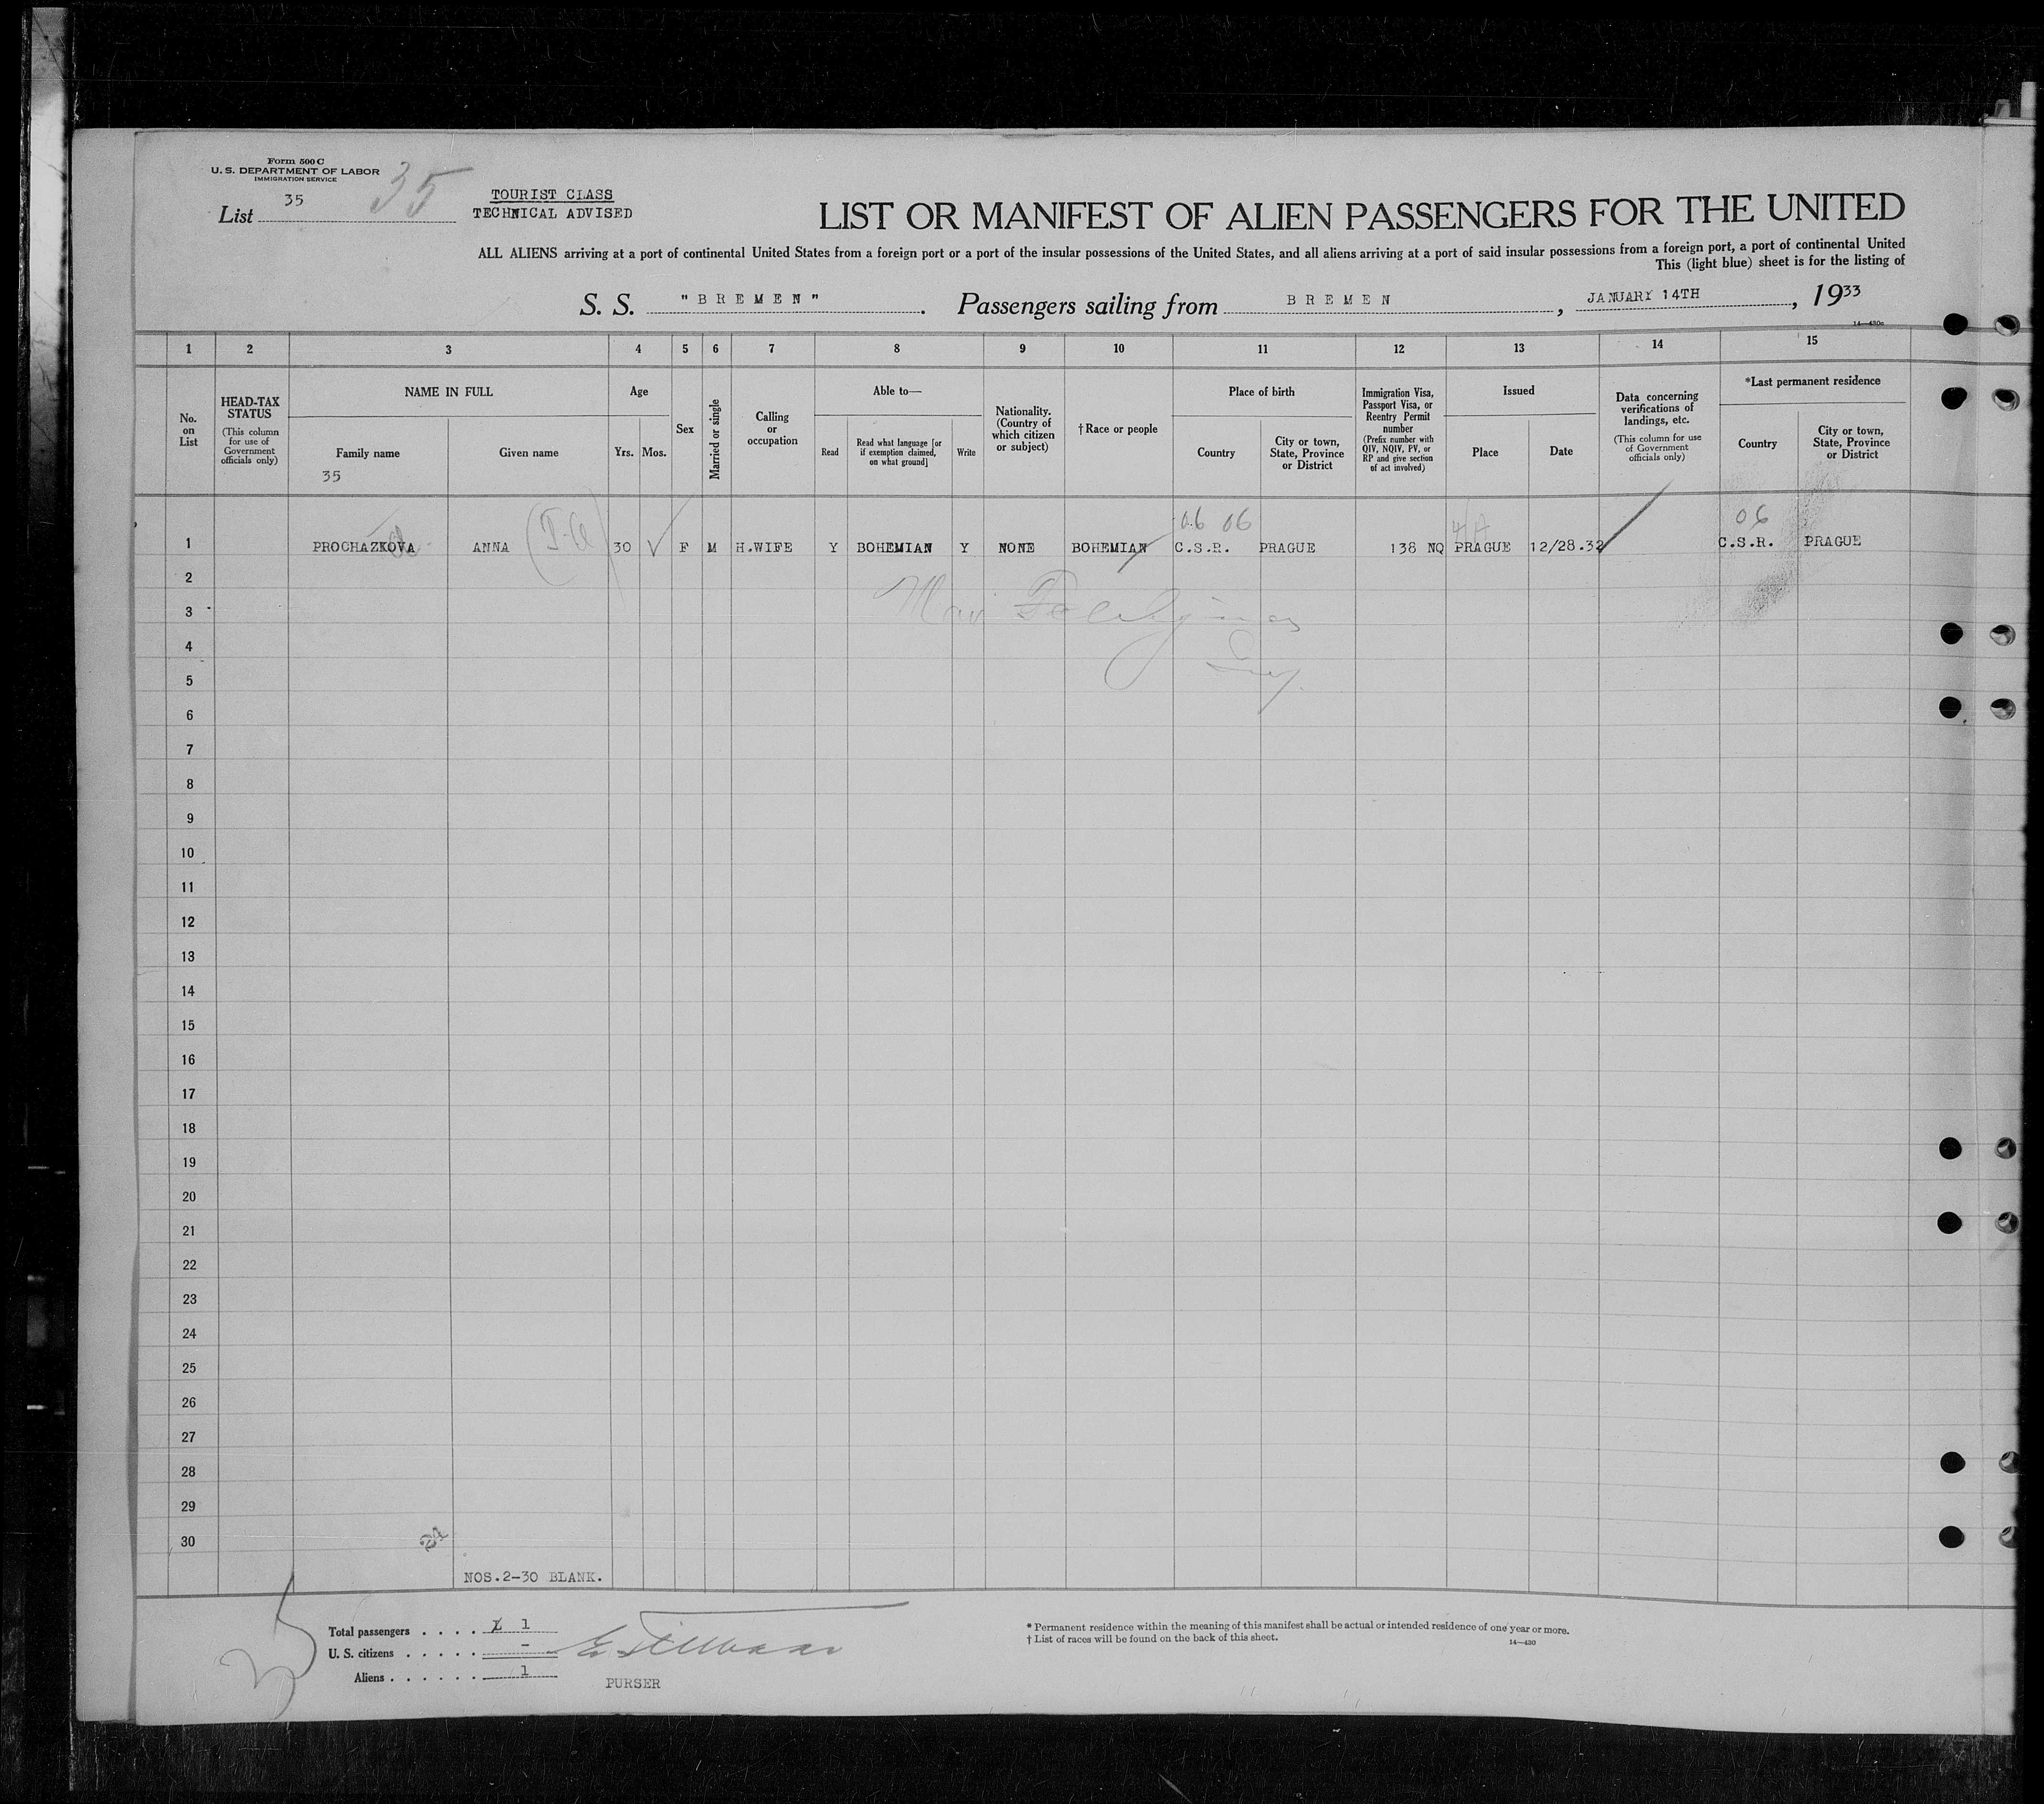 Form 500 C
U. S. DEPARTMENT OF LABOR
IMMIGRATION SERVICE
List 35
35
TOURIST CLASS
TECHNICAL ADVISED
LIST OR MANIFEST OF ALIEN PASSENGERS FOR THE UNITED
ALL ALIENS arriving at a port of continental United States from a foreign port or a port of the insular possessions of the United States, and all aliens arriving at a port of said insular possessions from a foreign port, a port of continental United
This (light blue) sheet is for the listing of
S. S. "BREMEN". Passengers sailing from BREMEN, JANUARY 14TH, 1933
14—430c
1 2 3 4 5 6 7 8 9 10 11 12 13 14 15
No. on List
HEAD-TAX STATUS
(This column for use of Government officials only)
NAME IN FULL
Family name
35
Given name
Age
Yrs. Mos.
Sex
Married or single
Calling or occupation
Able to—
Read
Read what language [or if exemption claimed, on what ground]
Write
Nationality. (Country of which citizen or subject)
†Race or people
Place of birth
Country
City or town, State, Province or District
Immigration Visa, Passport Visa, or Reentry Permit number
(Prefix number with QIV, NQIV, PV, or RP and give section of act involved)
Issued
Place
Date
Data concerning verifications of landings, etc.
(This column for use of Government officials only)
*Last permanent residence
Country
City or town, State, Province or District
06 06 06
1 PROCHAZKOVA ANNA 30 F M H.WIFE Y BOHEMIAN Y NONE BOHEMIAN C.S.R. PRAGUE 138 NQ PRAGUE 12/28.32 C.S.R. PRAGUE
2
3
4
5
6
7
8
9
10
11
12
13
14
15
16
17
18
19
20
21
22
23
24
25
26
27
28
29
30
NOS.2-30 BLANK.
Total passengers . . . . 1
U. S. citizens . . . . . -
Aliens . . . . . . 1
PURSER
* Permanent residence within the meaning of this manifest shall be actual or intended residence of one year or more.
† List of races will be found on the back of this sheet.
14—430